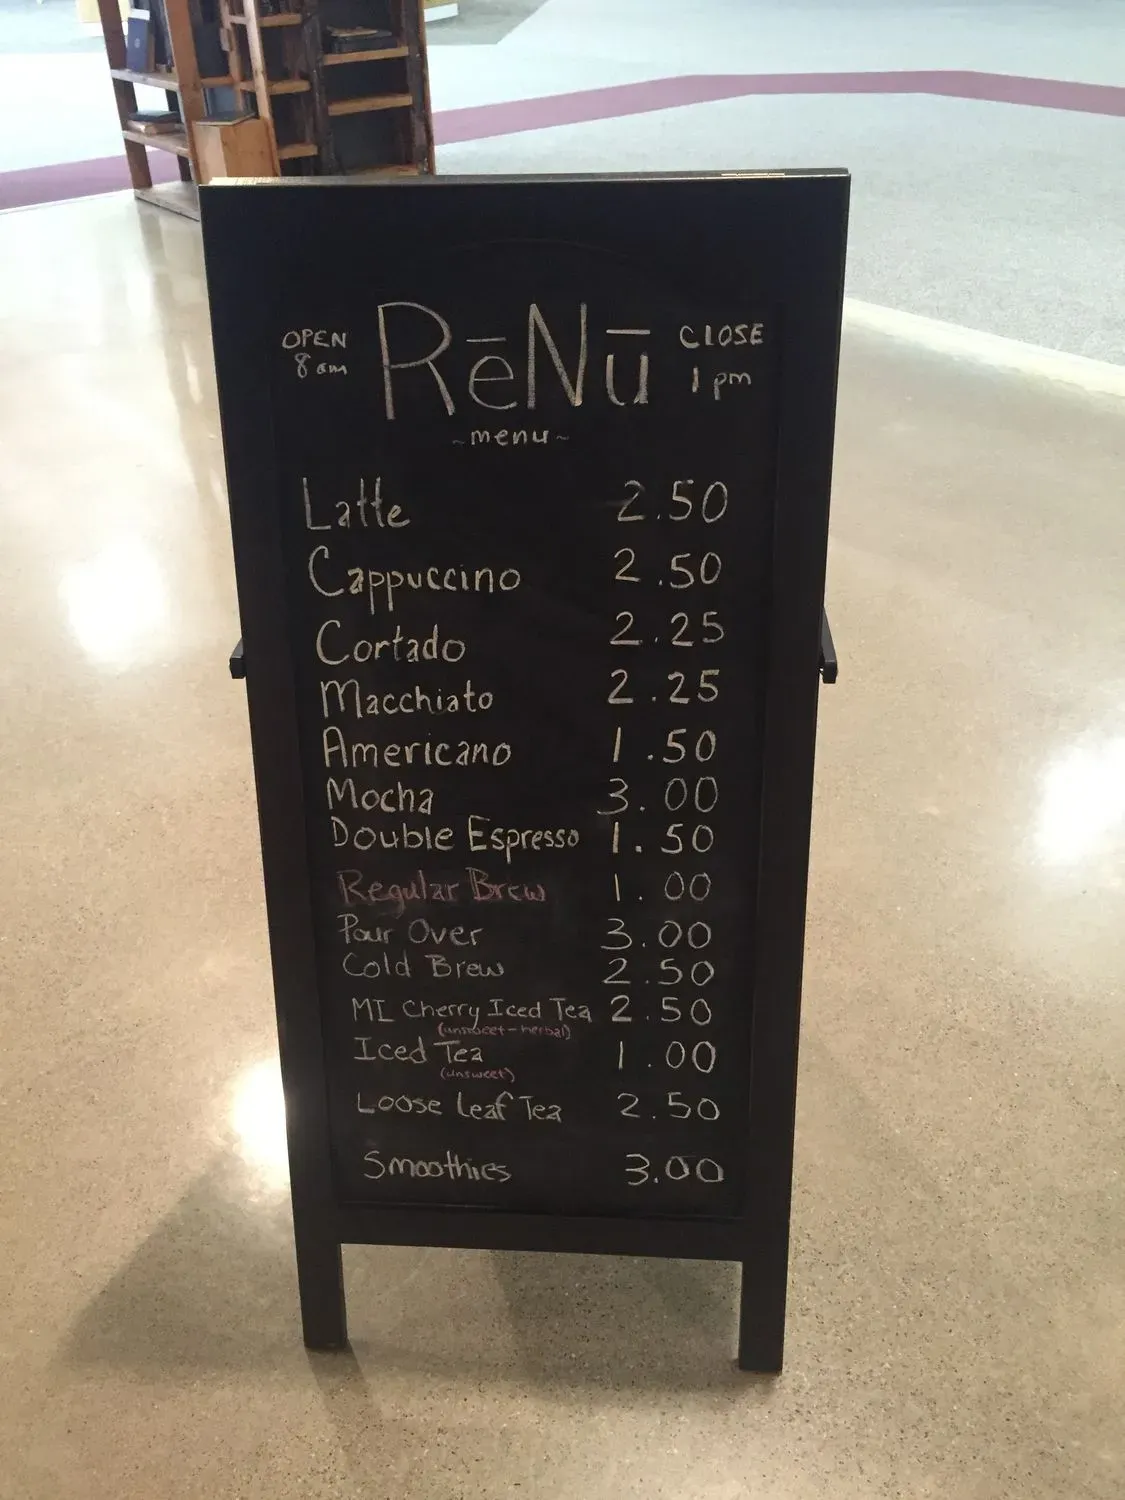 OPEN 8 am RēNū CLOSE 1 pm
~menu~
Latte 2.50
Cappuccino 2.50
Cortado 2.25
Macchiato 2.25
Americano 1.50
Mocha 3.00
Double Espresso 1.50
Regular Brew 1.00
Pour Over 3.00
Cold Brew 2.50
MI Cherry Iced Tea 2.50
(unsweet-herbal)
Iced Tea 1.00
(unsweet)
Loose Leaf Tea 2.50
Smoothies 3.00